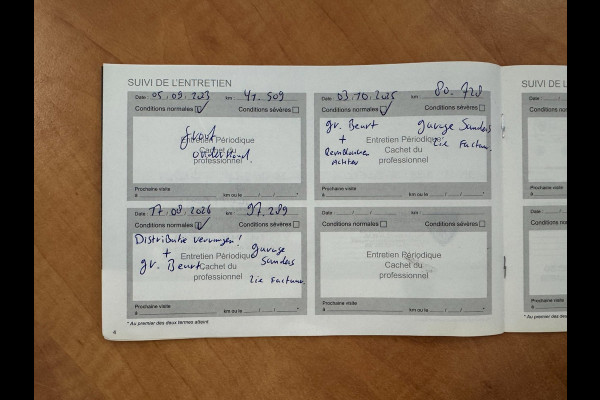 SUIVI DE L'ENTRETIEN
Date : 05.09.2023 km : 41.509
Conditions normales Conditions sévères
Groot
onderhoud
Entretien Périodique
Cachet du
professionnel
Prochaine visite
à km ou le / / *
Date : 03.10.2025 80.728
Conditions normales Conditions sévères
gr. Beurt garage Sanders
+ zie Factuur
Remblokken
Achter
Entretien Périodique
Cachet du
professionnel
Prochaine visite
à km ou le / / *
Date : 17.08.2026 km : 97.289
Conditions normales Conditions sévères
Distributie vervangen!
+ garage
gr. Beurt Sanders
zie Factuur
Entretien Périodique
Cachet du
professionnel
Prochaine visite
à km ou le / / *
Date : / / km :
Conditions normales Conditions sévères
Entretien Périodique
Cachet du
professionnel
Prochaine visite
à km ou le / / *
* Au premier des deux termes atteint
4
SUIVI DE L
Date :
Conditions no
Prochaine visite
à
Date :
Conditions no
Prochaine visite
à
* Au premier des deu